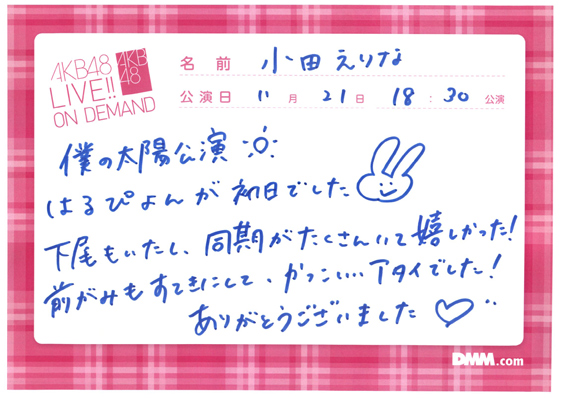 AKB48
LIVE!!
ON DEMAND
AKB
48
名前 小田えりな
公演日 11月21日 18:30公演
僕の太陽公演
はるぴよんが初日でした
下尾もいたし、同期がたくさんいて嬉しかった!
前がみもすてきにして、かっこいいアタイでした!
ありがとうございました♡
DMM.com